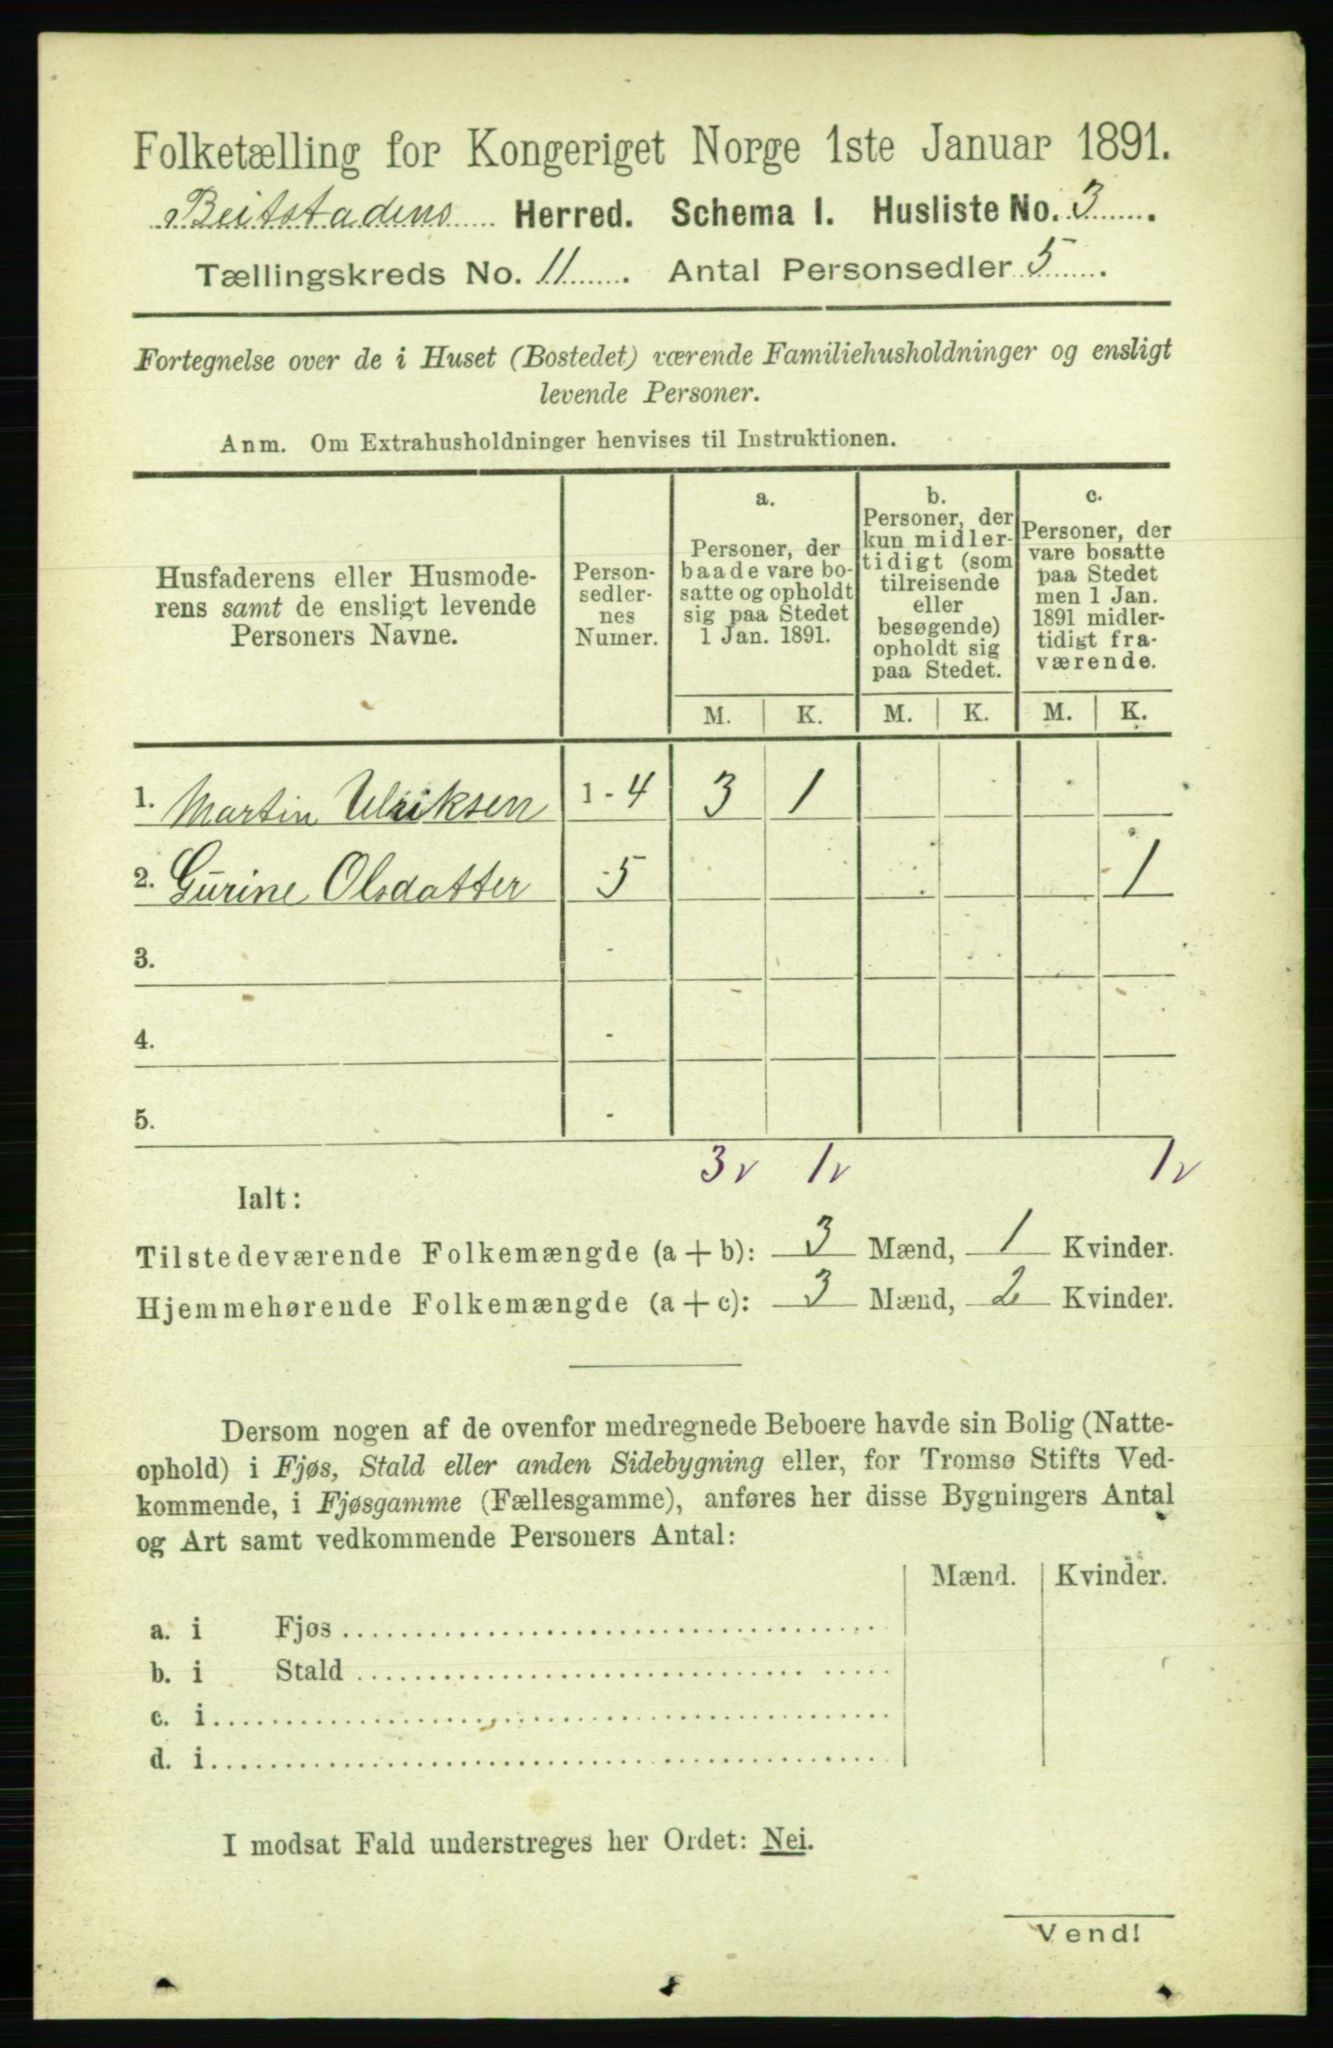 Folketælling for Kongeriget Norge 1ste Januar 1891.
Beitstadens Herred. Schema I. Husliste No. 3.
Tællingskreds No. 11. Antal Personsedler 5.
Fortegnelse over de i Huset (Bostedet) værende Familiehusholdninger og ensligt
levende Personer.
Anm. Om Extrahusholdninger henvises til Instruktionen.
Husfaderens eller Husmode-
rens samt de ensligt levende
Personers Navne.
Person-
sedler-
nes
Numer.
a.
Personer, der
baade vare bo-
satte og opholdt
sig paa Stedet
1 Jan. 1891.
b.
Personer, der
kun midler-
tidigt (som
tilreisende
eller
besøgende)
opholdt sig
paa Stedet.
c.
Personer, der
vare bosatte
paa Stedet
men 1 Jan.
1891 midler-
tidigt fra-
værende.
M. K. M. K. M. K.
1. Martin Ulriksen 1 - 4 3 1
2. Gurine Olsdatter - 5 1
3. -
4. -
5. -
3 v 1 v 1 v
Ialt:
Tilstedeværende Folkemængde (a + b): 3 Mænd, 1 Kvinder.
Hjemmehørende Folkemængde (a + c): 3 Mænd, 2 Kvinder.
Dersom nogen af de ovenfor medregnede Beboere havde sin Bolig (Natte-
ophold) i Fjøs, Stald eller anden Sidebygning eller, for Tromsø Stifts Ved-
kommende, i Fjøsgamme (Fællesgamme), anføres her disse Bygningers Antal
og Art samt vedkommende Personers Antal:
Mænd. Kvinder.
a. i Fjøs
b. i Stald
c. i
d. i
I modsat Fald understreges her Ordet: Nei.
Vend!